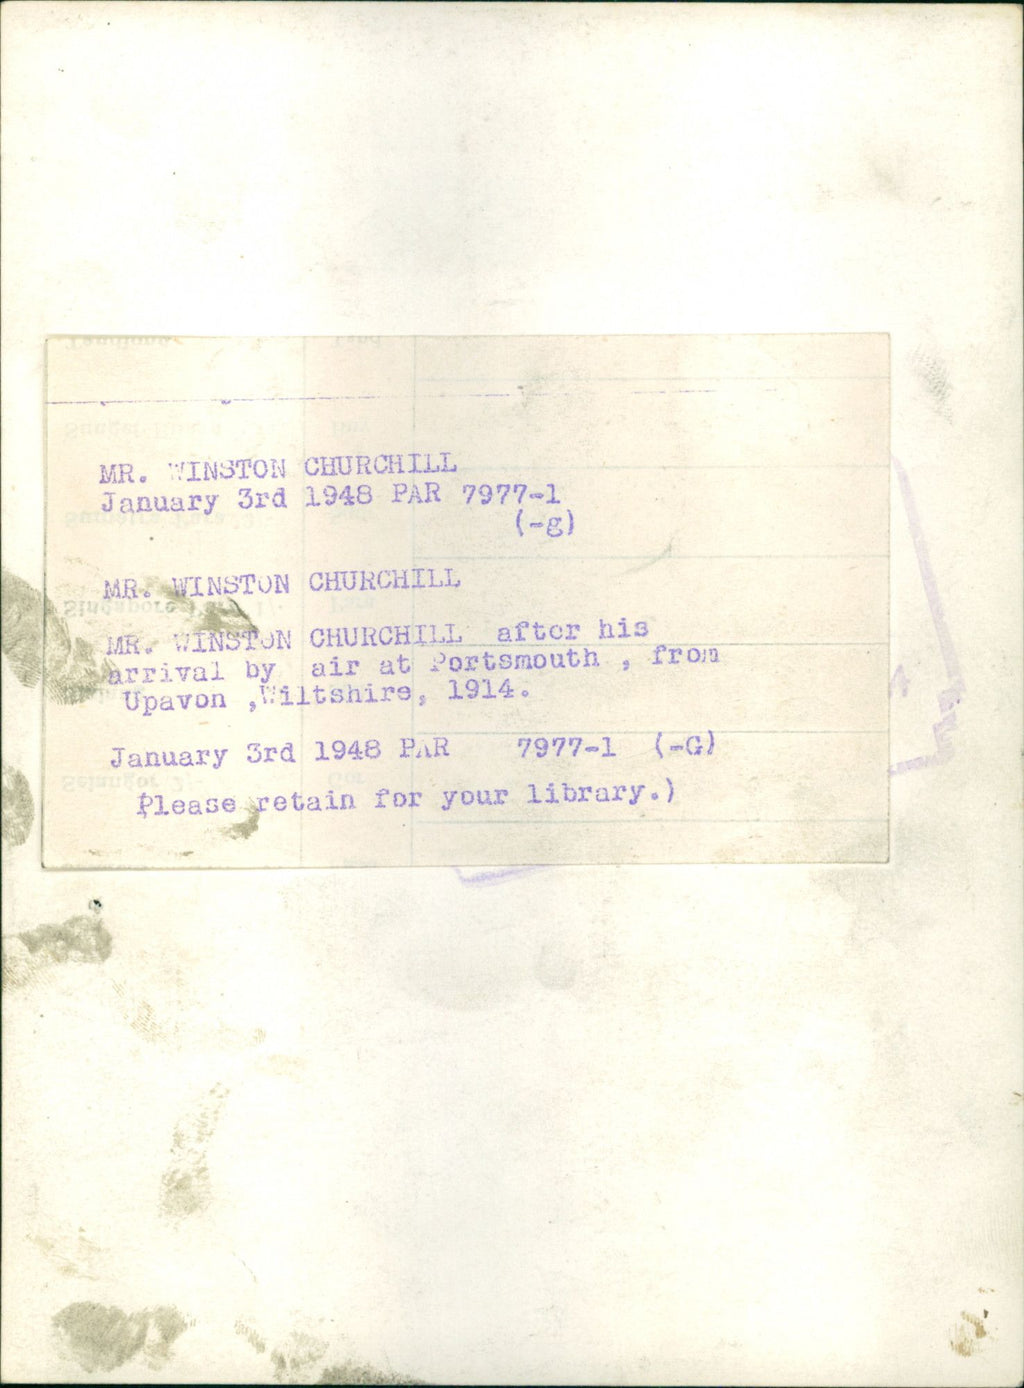 MR. WINSTON CHURCHILL
January 3rd 1948 PAR 7977-1
(-g)
MR. WINSTON CHURCHILL
MR. WINSTON CHURCHILL after his
arrival by air at Portsmouth , from
Upavon ,Wiltshire, 1914.
January 3rd 1948 PAR 7977-1 (-G)
Please retain for your library.)